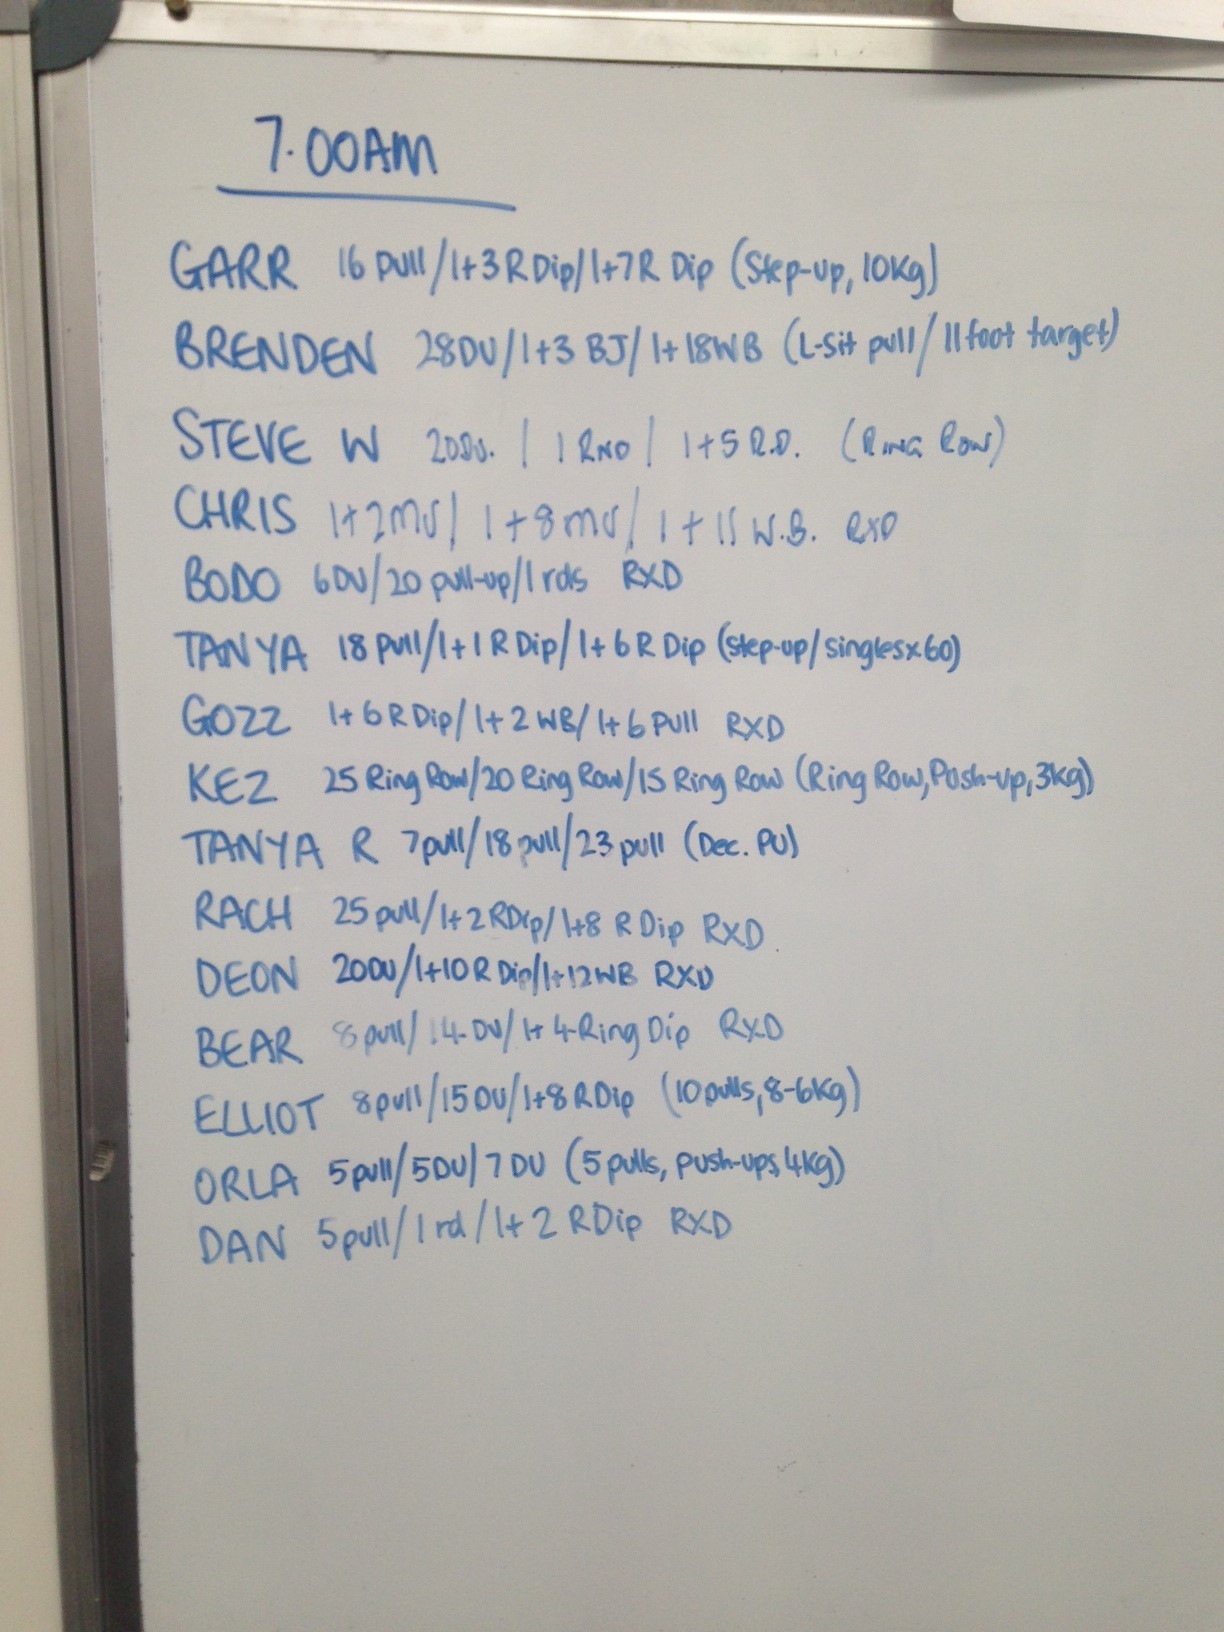 7.00AM
GARR 16 pull/1+3 R Dip/1+7 R Dip (Step-up, 10Kg)
BRENDEN 28DU/1+3 BJ/1+18WB (L-Sit pull/11 foot target)
STEVE W 20DU. / 1 RND / 1+5 R.D. (RING ROW)
CHRIS 1+2MU/ 1+8MU/ 1+11 W.B. RXD
BODO 6DU/20 pull-up/1 rds RXD
TANYA 18 pull/1+1 R Dip/1+6 R Dip (step-up/singlesx60)
GOZZ 1+6 R Dip/1+2 WB/1+6 Pull RXD
KEZ 25 Ring Row/20 Ring Row/15 Ring Row (Ring Row, Push-up, 3kg)
TANYA R 7pull/18 pull/23 pull (Dec. PU)
RACH 25 pull/1+2 RDip/1+8 R Dip RXD
DEON 20DU/1+10 R Dip/1+12WB RXD
BEAR 8 pull/14-DU/1+4-Ring Dip RXD
ELLIOT 8pull/15DU/1+8 RDip (10pulls, 8-6Kg)
ORLA 5pull/5DU/7DU (5pulls, push-ups, 4Kg)
DAN 5pull/1 rd/1+2 RDip RXD